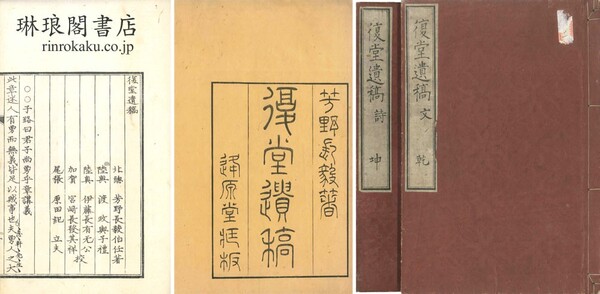 琳琅閣書店
rinrokaku.co.jp
復堂遺稿
北總 芳野長毅伯任著
陸奥 渡 政興子禮
陸奥 伊藤長有允公 校
加賀 宮崎長發其祥
尾張 原田 記 立夫
○○子路曰君子尚勇乎章講義
此章述人有勇而無義皆足以敗事也夫勇人之大
芳野長毅著
復堂遺稿
逢原堂藏板
復堂遺稿 文 乾
復堂遺稿 詩 坤